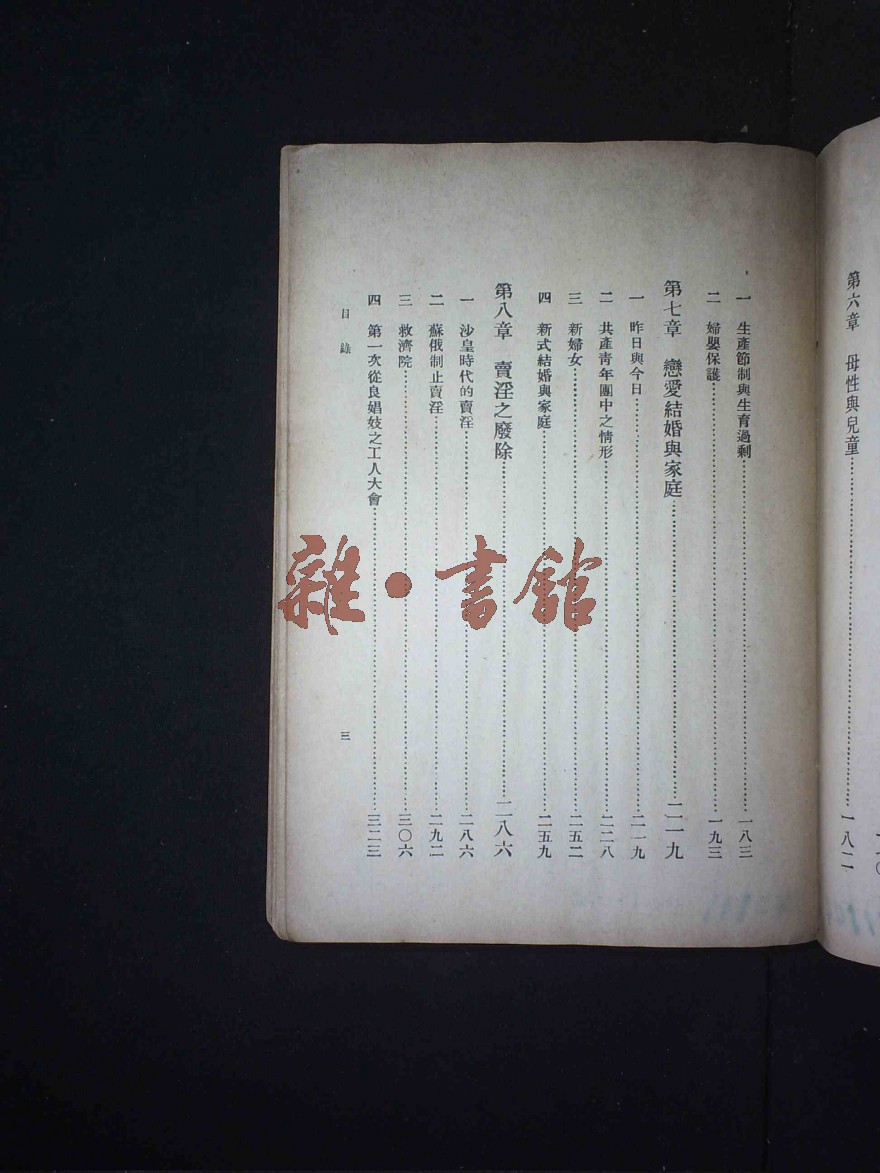 第六章 母性與兒童……一八二
一 生產節制與生育過剩……一八三
二 婦嬰保護……一九三
第七章 戀愛結婚與家庭……二一九
一 昨日與今日……二一九
二 共產青年團中之情形……二二八
三 新婦女……二五二
四 新式結婚與家庭……二五九
第八章 賣淫之廢除……二八六
一 沙皇時代的賣淫……二八六
二 蘇俄制止賣淫……二九二
三 救濟院……三〇六
四 第一次從良娼妓之工人大會……三二三
目錄
三
雜·書館